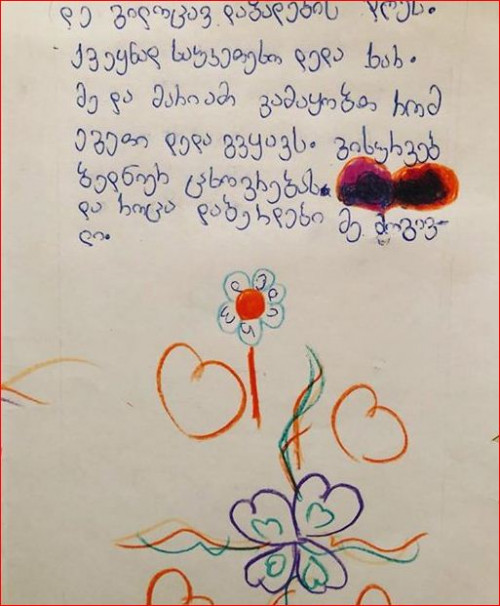 დე გილოცავ დაბადების დღეს.
ქვეყნად საუკეთესო დედა ხარ.
მე და მარიამი ვამაყობთ რომ
ეგეთი დედა გვყავს. გისურვებ
ბედნიერ ცხოვრებას.
და როცა დაბერდები მე მოგივ-
ლი.